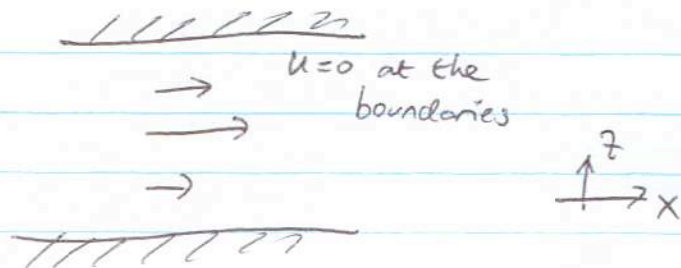 u=0 at the
boundaries
z
x